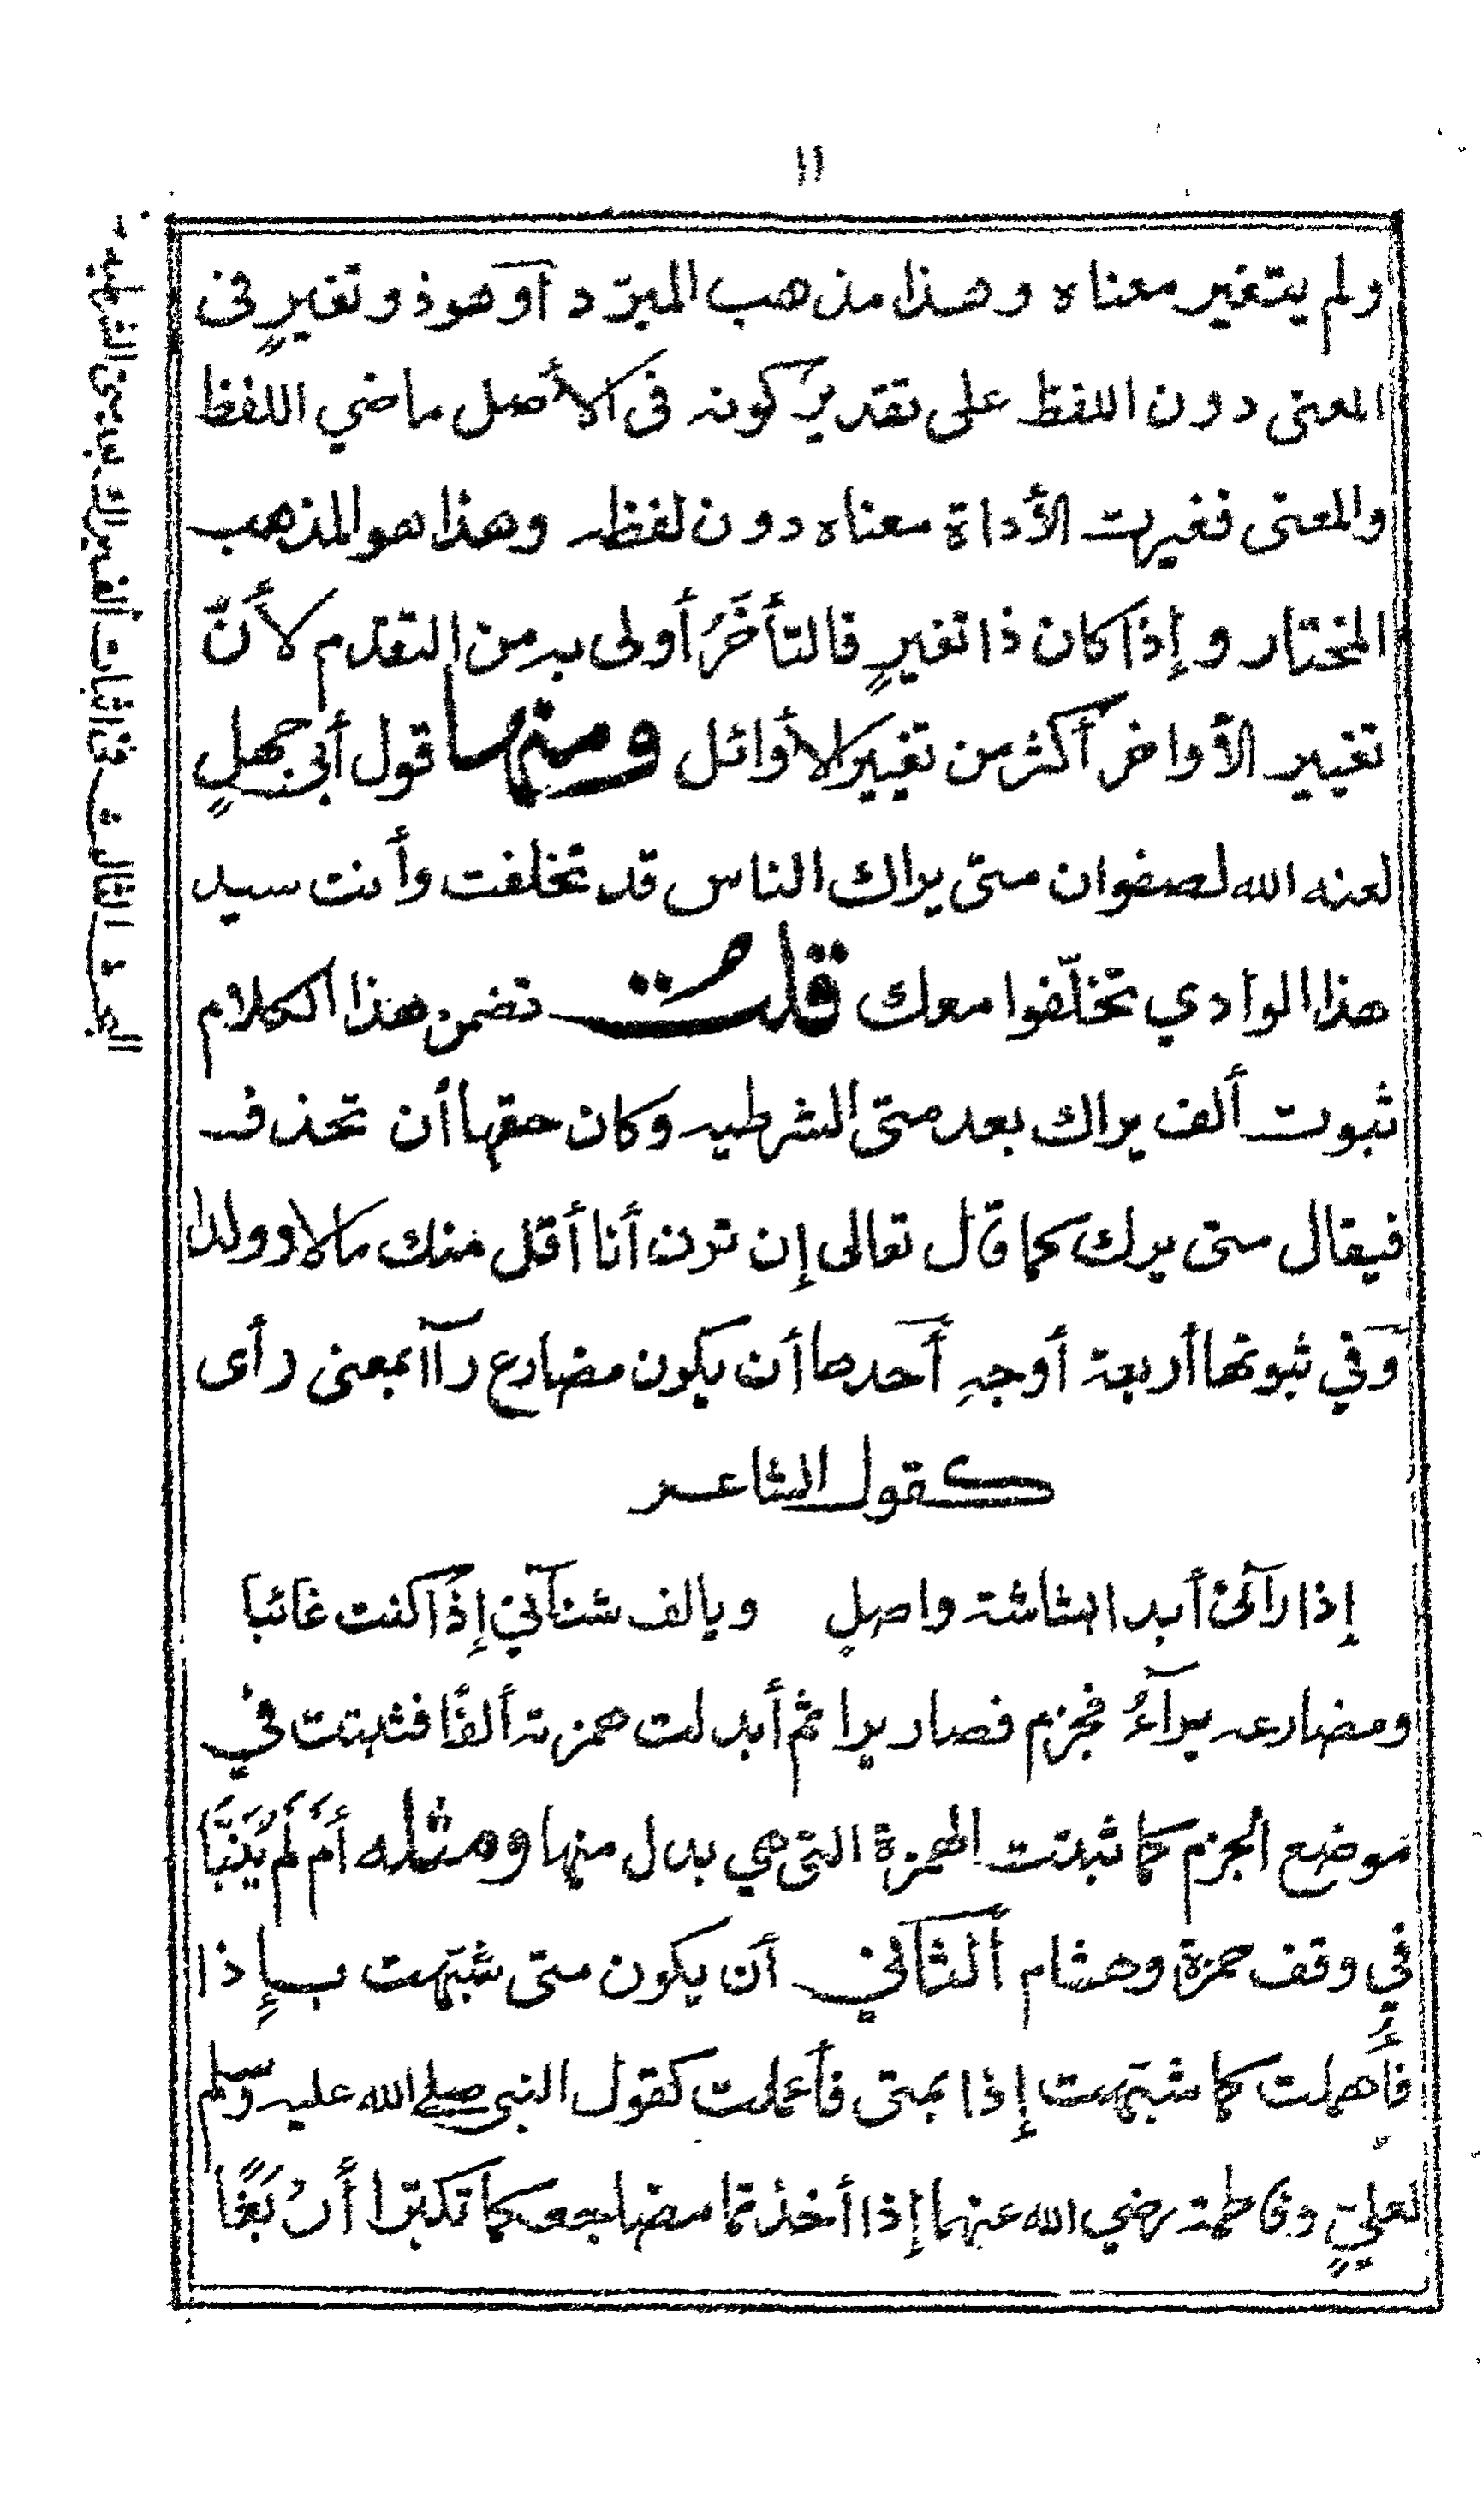 ١١
ولم يتغير معناه وهذا مذهب المبرّد أو هو ذو تغيرٍ فى
المعنى دون اللفظ على تقدير كونه فى الأصل ماضي اللفظ
والمعنى فغيرت الأداة معناه دون لفظه وهذا هو المذهب
المختار وإذا كان ذا تغيرٍ فالتأخّرُ أولى به من التقدم لأنّ
تغيير الأواخر أكثر من تغيير الأوائل ومنها قول أبى جهلٍ
لعنه الله لصفوان متى يراك الناس قد تخلفت وأنت سيد
هذا الوادي تخلّفوا معك قلت تضمن هذا الكلام
ثبوت ألف يراك بعد متى الشرطيه وكان حقها أن تحذف
فيقال متى يرك كما قال تعالى إن ترن أنا أقل منك مالا وولدا
وفي ثبوتها أربعة أوجهٍ أحدها أن يكون مضارع رآا بمعنى رأى
كقول الشاعر
إذا رآئى أبدا بشاشة واصلٍ ويالف شنآني إذا كنت غائبا
ومضارعه يرآءُ فجزم فصار يرا ثم أبدلت همزته ألفًا فثبتت في
موضع الجزم كما ثبتت الهمزة التى هي بدل منها ومثله أَم لَم يُنَبَّا
في وقف حمزة وهشام ألثاني أن يكون متى شبّهت بإذا
فأُهملت كما شبّهت إذا بمتى فأعملت كقول النبى صلى الله عليه وسلم
لعليٍّ وفاطمة رضي الله عنهما إذا أخذتما مضاجعكما تكبّرا أربَعًا
البحث الثالث فى اثبات ألف يراك بعد متى الشرطية